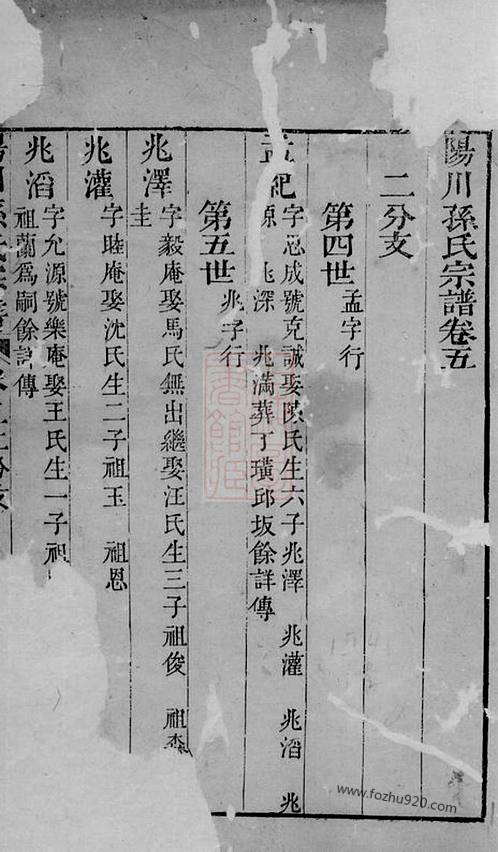 陽川孫氏宗譜卷五
二分支
第四世 孟字行
孟紀 字忍成號克誠娶陳氏生六子兆澤 兆灌 兆滔 兆
源 兆深 兆滿葬丁璜邱坂餘詳傳
第五世 兆字行
兆澤 字毅庵娶馬氏無出繼娶汪氏生三子祖俊 祖森
圭
兆灌 字睦庵娶沈氏生二子祖玉 祖恩
兆滔 字允源號樂庵娶王氏生一子祖
祖蘭為嗣餘詳傳
www.fozhu920.com